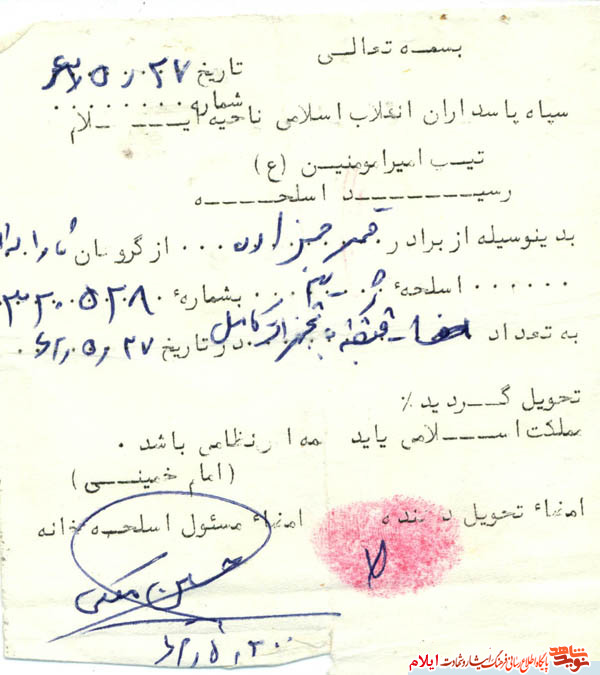 بسمه تعالی
تاریخ ۶۲٫۵٫۲۷
شماره ........
سپاه پاسداران انقلاب اسلامی ناحیه ایــلام
تیپ امیرالمومنیـن (ع)
رسیـــــد اسلحـــه
بدینوسیله از برادر ... از گروهان
...... اسلحهٔ ... بشمارهٔ
به تعداد ... تجهیزات کامل در تاریخ ۶۲٫۵٫۲۷ .
تحویل گـــردید ٪
مملکت اســـلامی باید همه اش نظامی باشد .
(امام خمینـــی)
امضاء تحویل دهنده امضاء مسئول اسلحـــه خانه
حسین
۶۲٫۵٫۳۰
نوید شاهد
پایگاه اطلاع رسانی فرهنگ ایثار و شهادت ایلام